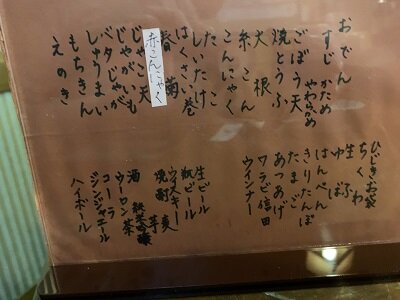 おでん
すじ かため
やわらかめ
ごぼう天
焼とうふ
大根
糸こん
こんにゃく
たこ
しいたけ
はくさい巻
春菊
赤こんにゃく
じゃこ天
じゃがいも
ベタじゃが
しゅうまい
もちきん
えのき
ひじきお袋
ちくわ
生ふ
ゆば
はんぺん
きりたんぽ
たまご
あつあげ
ワラビ信田
ウインナー
生ビール
瓶ビール
ウイスキー
焼酎 芋 麦
酒
ウーロン茶
コーラ
ジンジャエール
ハイボール